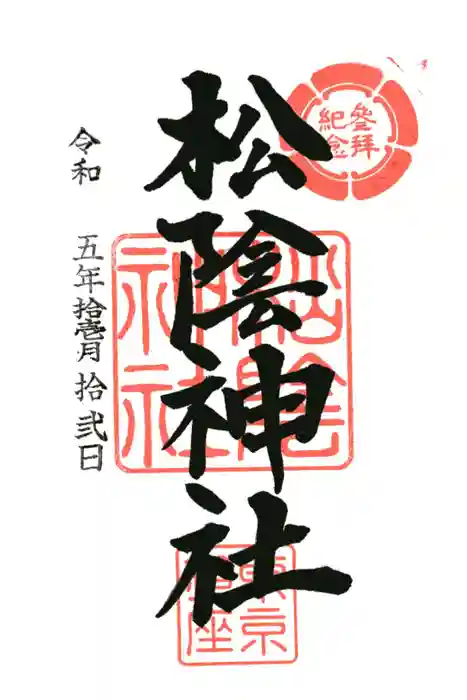 參拜
紀念
松陰神社
松陰
神社
東京
令和 五年拾壱月拾弐日